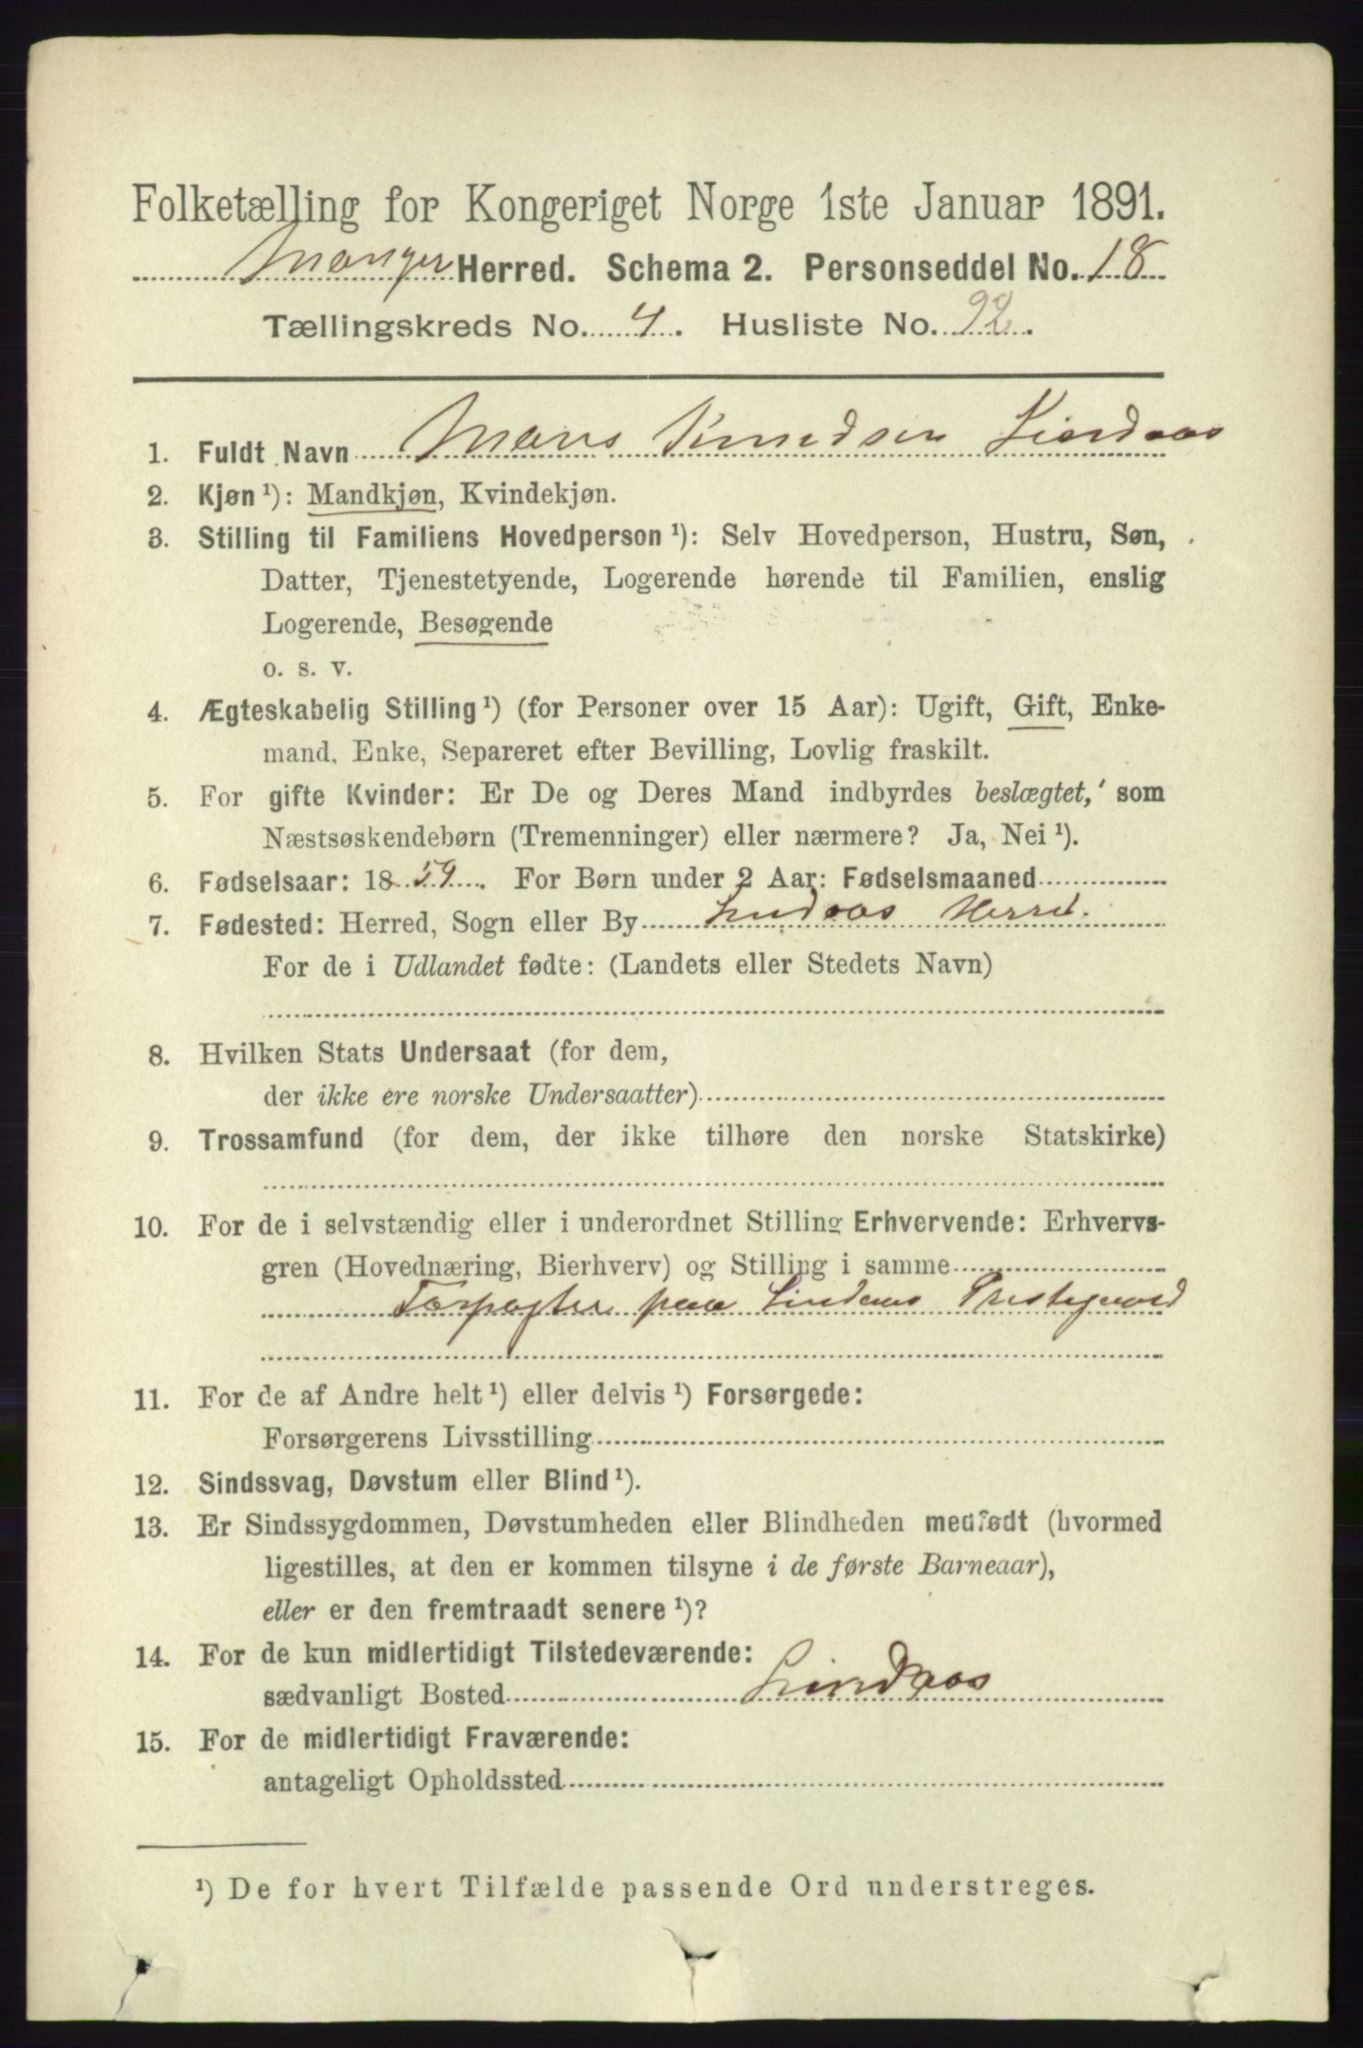 Folketælling for Kongeriget Norge 1ste Januar 1891.
Manger Herred. Schema 2. Personseddel No. 18
Tællingskreds No. 4. Husliste No. 92.
1. Fuldt Navn Mons Knudsen Lindaas
2. Kjøn ¹): Mandkjøn, Kvindekjøn.
3. Stilling til Familiens Hovedperson ¹): Selv Hovedperson, Hustru, Søn,
Datter, Tjenestetyende, Logerende hørende til Familien, enslig
Logerende, Besøgende
o. s. v.
4. Ægteskabelig Stilling ¹) (for Personer over 15 Aar): Ugift, Gift, Enke-
mand, Enke, Separeret efter Bevilling, Lovlig fraskilt.
5. For gifte Kvinder: Er De og Deres Mand indbyrdes beslægtet, som
Næstsøskendebørn (Tremenninger) eller nærmere? Ja, Nei ¹).
6. Fødselsaar: 1859. For Børn under 2 Aar: Fødselsmaaned
7. Fødested: Herred, Sogn eller By Lindaas Herred.
For de i Udlandet fødte: (Landets eller Stedets Navn)
8. Hvilken Stats Undersaat (for dem,
der ikke ere norske Undersaatter)
9. Trossamfund (for dem, der ikke tilhøre den norske Statskirke)
10. For de i selvstændig eller i underordnet Stilling Erhvervende: Erhvervs-
gren (Hovednæring, Bierhverv) og Stilling i samme
paa Lindaas Prestegaard
11. For de af Andre helt ¹) eller delvis ¹) Forsørgede:
Forsørgerens Livsstilling
12. Sindssvag, Døvstum eller Blind ¹).
13. Er Sindssygdommen, Døvstumheden eller Blindheden medfødt (hvormed
ligestilles, at den er kommen tilsyne i de første Barneaar),
eller er den fremtraadt senere ¹)?
14. For de kun midlertidigt Tilstedeværende:
sædvanligt Bosted Lindaas
15. For de midlertidigt Fraværende:
antageligt Opholdssted
¹) De for hvert Tilfælde passende Ord understreges.